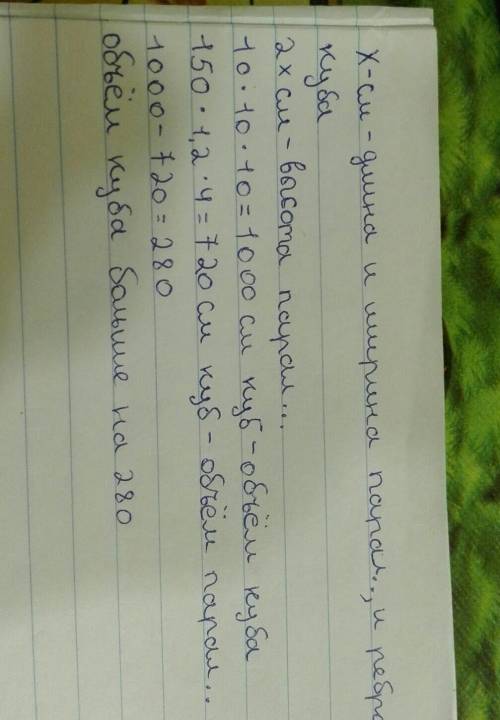 х-см-длина и ширина парал.., и ребро
куба
2х см - высота парал...
10·10·10=1000 см куб-объём куба
150·1,2·4=720 см куб-объём парал..
1000-720=280
объём куба больше на 280